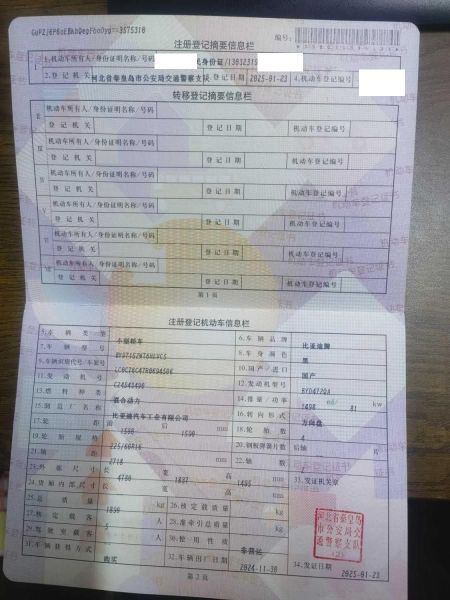 注册登记摘要信息栏
编号:
1.机动车所有人/身份证明名称/号码
2.登记机关 河北省秦皇岛市公安局交通警察支队 登记日期 2025-01-23 4.机动车登记编号
转移登记摘要信息栏
机动车所有人/身份证明名称/号码
登记机关 登记日期 机动车登记编号
机动车所有人/身份证明名称/号码
登记机关 登记日期 机动车登记编号
机动车所有人/身份证明名称/号码
登记机关 登记日期 机动车登记编号
机动车所有人/身份证明名称/号码
登记机关 登记日期 机动车登记编号
机动车所有人/身份证明名称/号码
登记机关 登记日期 机动车登记编号
第1页
注册登记机动车信息栏
5.车辆类型 小型轿车 6.车辆品牌 比亚迪牌
7.车辆型号 8.车身颜色 黑
9.车辆识别代号/车架号 10.国产/进口 国产
11.发动机号 12.发动机型号 BYD472QA
13.燃料种类 混合动力 14.排量/功率 1498 ml/ 81 kw
15.制造厂名称 比亚迪汽车工业有限公司 16.转向形式 方向盘
17.轮距 前 1590 后 1590 mm 18.轮胎数 4
19.轮胎规格 225/60R16 20.钢板弹簧片数 后轴 片
21.轴距 2718 mm 22.轴数
23.外廓尺寸 长 4780 宽 1837 高 1495 mm 33.发证机关章
24.货厢内部尺寸 长 宽 高 mm
25.总质量 kg 26.核定载质量 kg
27.核定载客 5 人 28.准牵引总质量 kg
29.驾驶室载客 人 30.使用性质
31.车辆获得方式 购买 32.车辆出厂日期 2024-11-30 34.发证日期 2025-01-23
河北省秦皇岛
市公安局交
通警察支队
第2页